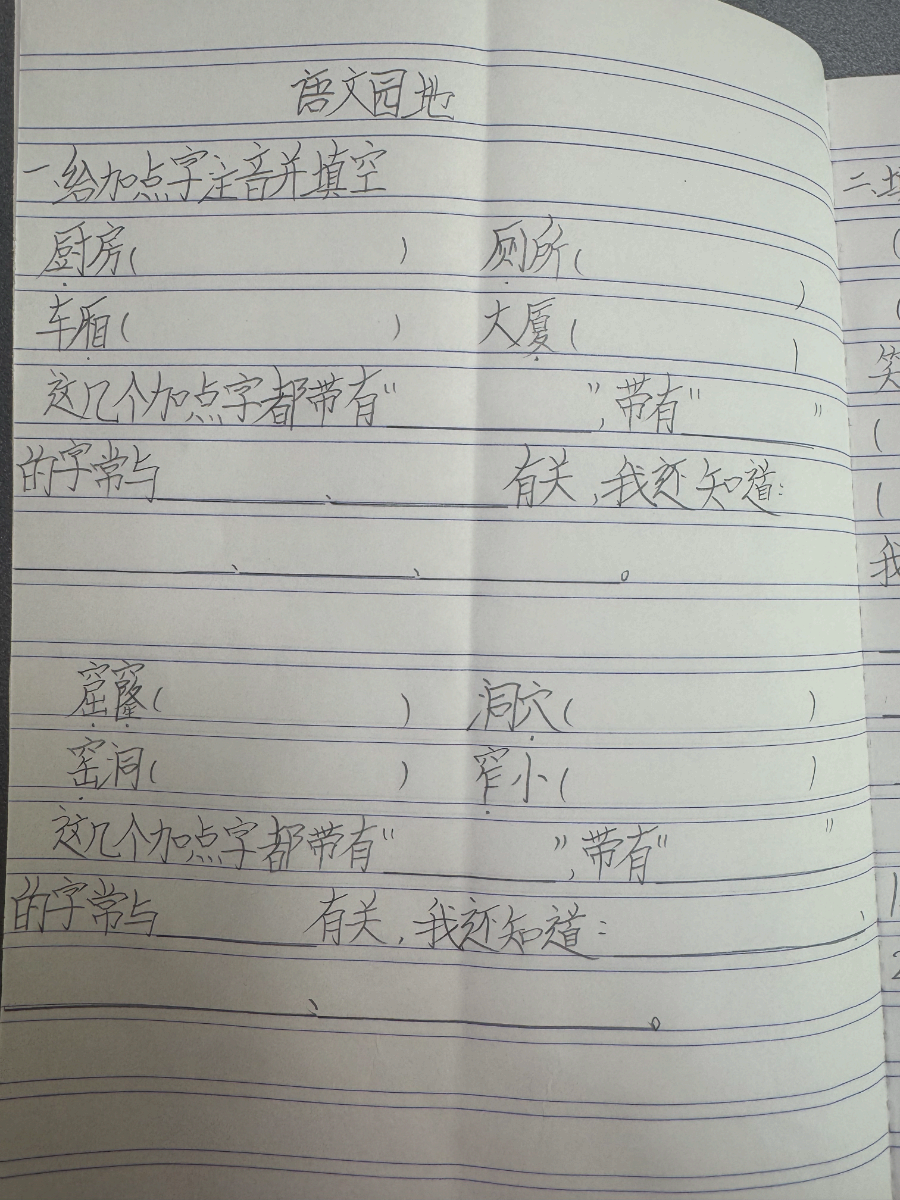 语文园地
一、给加点字注音并填空
厨房(　　　　) 厕所(　　　　)
车厢(　　　　) 大厦(　　　　)
这几个加点字都带有"________",带有"________"
的字常与________、________有关,我还知道:
________、________、________。
窟窿(　　　　) 洞穴(　　　　)
窑洞(　　　　) 窄小(　　　　)
这几个加点字都带有"________",带有"________"
的字常与________有关,我还知道:________、
________、________。
二、
(
(
笑
(
(
我
1
2